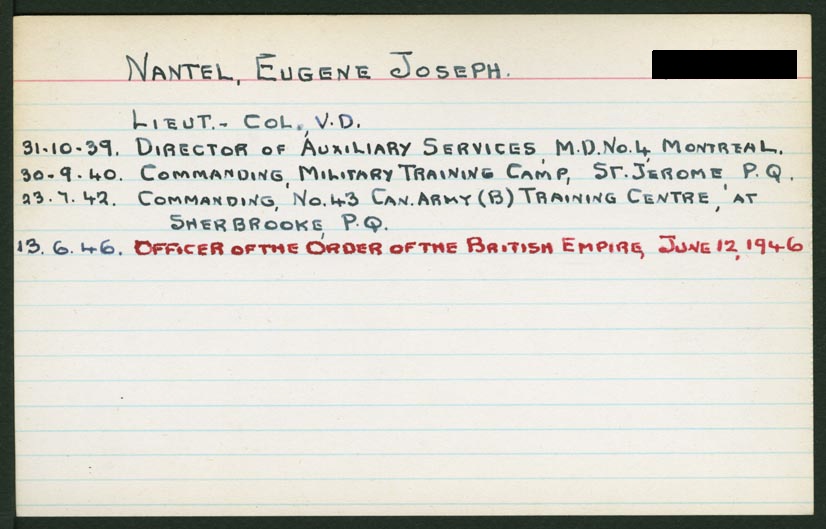 NANTEL, EUGENE JOSEPH.
LIEUT.- COL., V.D.
31-10-39. DIRECTOR OF AUXILIARY SERVICES, M.D.No.4, MONTREAL.
30-9-40. COMMANDING, MILITARY TRAINING CAMP, ST. JEROME P.Q.
23.7.42. COMMANDING, No.43 CAN. ARMY (B) TRAINING CENTRE, AT
SHERBROOKE, P.Q.
13.6.46. OFFICER OF THE ORDER OF THE BRITISH EMPIRE, JUNE 12, 1946